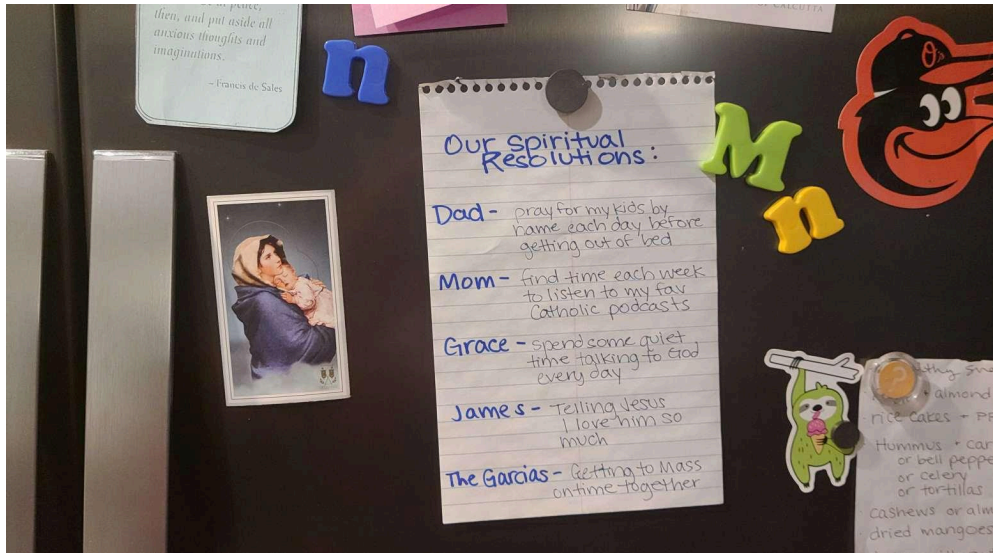 then, and put aside all
anxious thoughts and
imaginations.
– Francis de Sales
n
OF CALCUTTA
Our spiritual
Resolutions:
Dad - pray for my kids by
name each day before
getting out of bed
Mom - find time each week
to listen to my fav
Catholic podcasts
Grace - spend some quiet
time talking to God
every day
James - Telling Jesus
I love him so
much
The Garcias - Getting to Mass
on time together
M
n
O's
almond
rice cakes +
Hummus
or bell
or celery
or tortillas
cashews or
dried mangoes